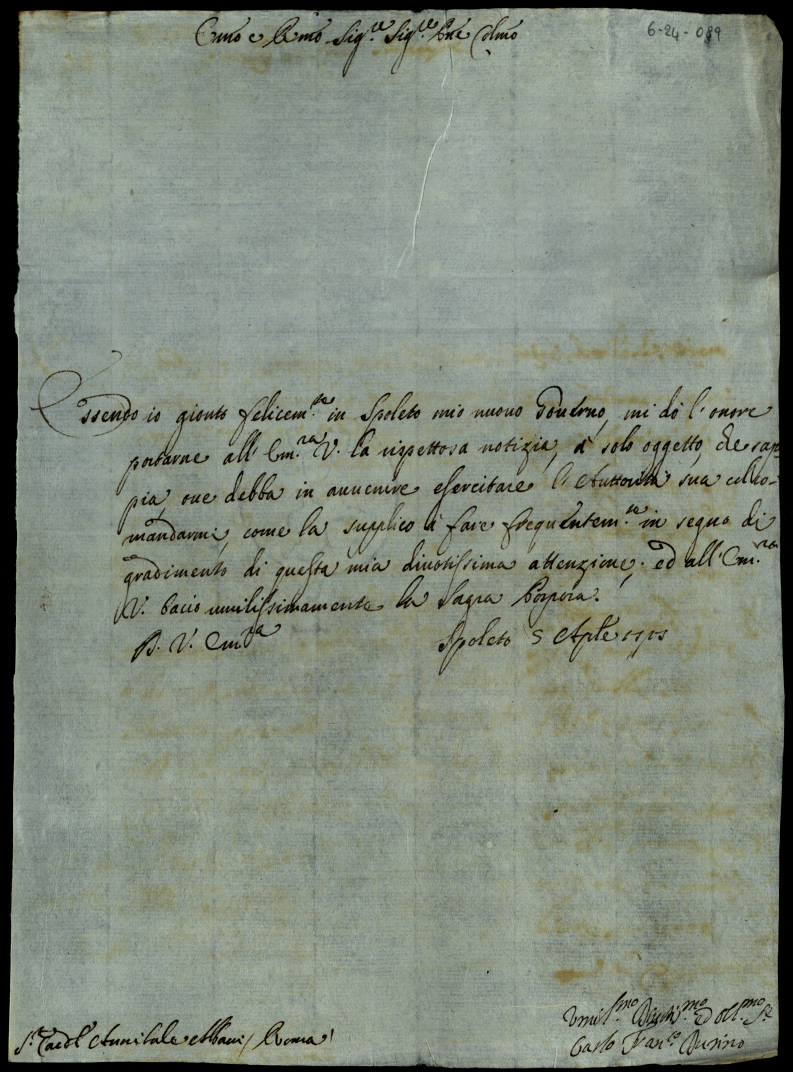 6-24-089
Emo e Rmo Sig.re Sig.re Pne Colmo
Essendo io gionto felicem.te in Spoleto mio nuouo Gouerno, mi dò l'onore
portarne all'Em.za V. la rispettosa notizia, à solo oggetto, che sap-
pia, oue debba in auuenire esercitare l'Auttorità sua col co-
mandarmi, come la supplico à fare frequentem.te in segno di
gradimento di questa mia diuotissima attenzione; ed all'Em.za
V. bacio umilissimamente la Sagra Porpora.
D. V. Em.za Spoleto 5 Aple
Vmil.mo Diuot.mo ed Obl.mo Se.
S.r Card.l Annibale Albani / Roma /
Carlo Fran.co Durino